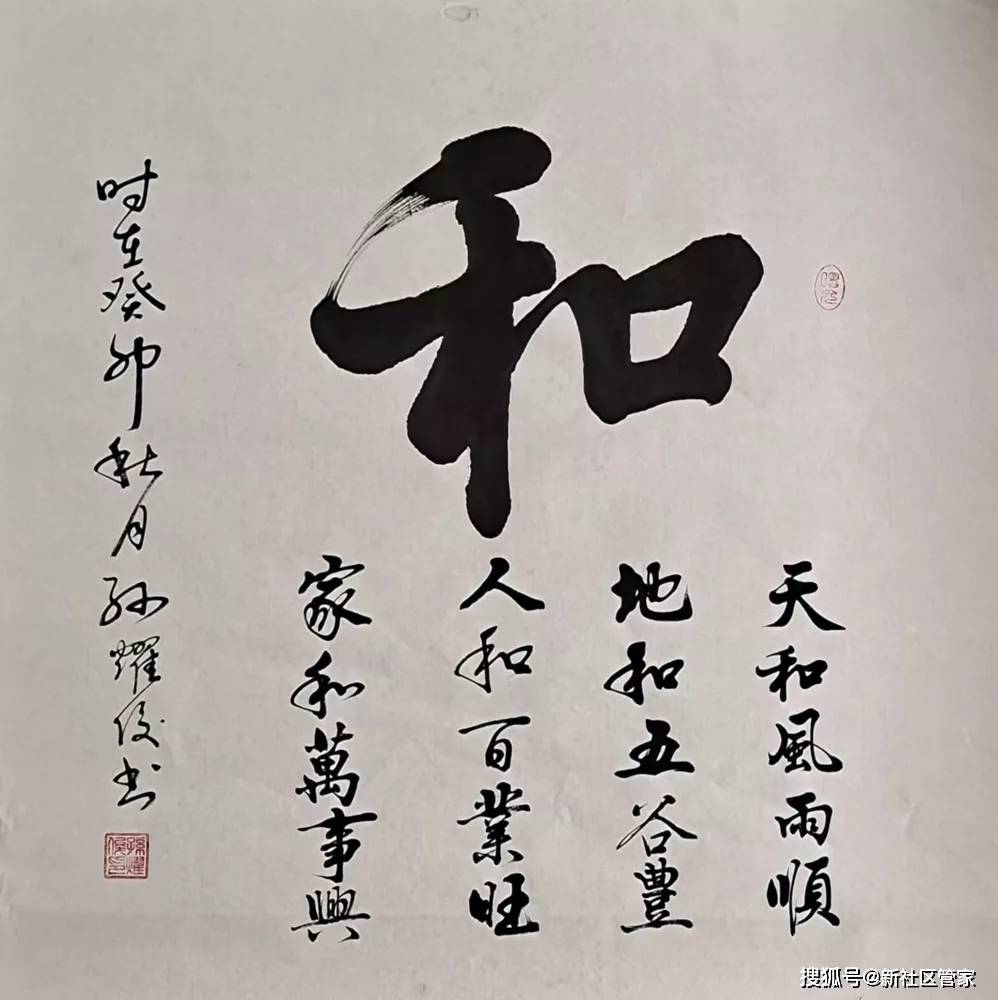 和
天和風雨順
地和五谷豐
人和百業旺
家和萬事興
时在癸卯秋月孙耀俊书
孫耀俊印
搜狐号@新社区管家